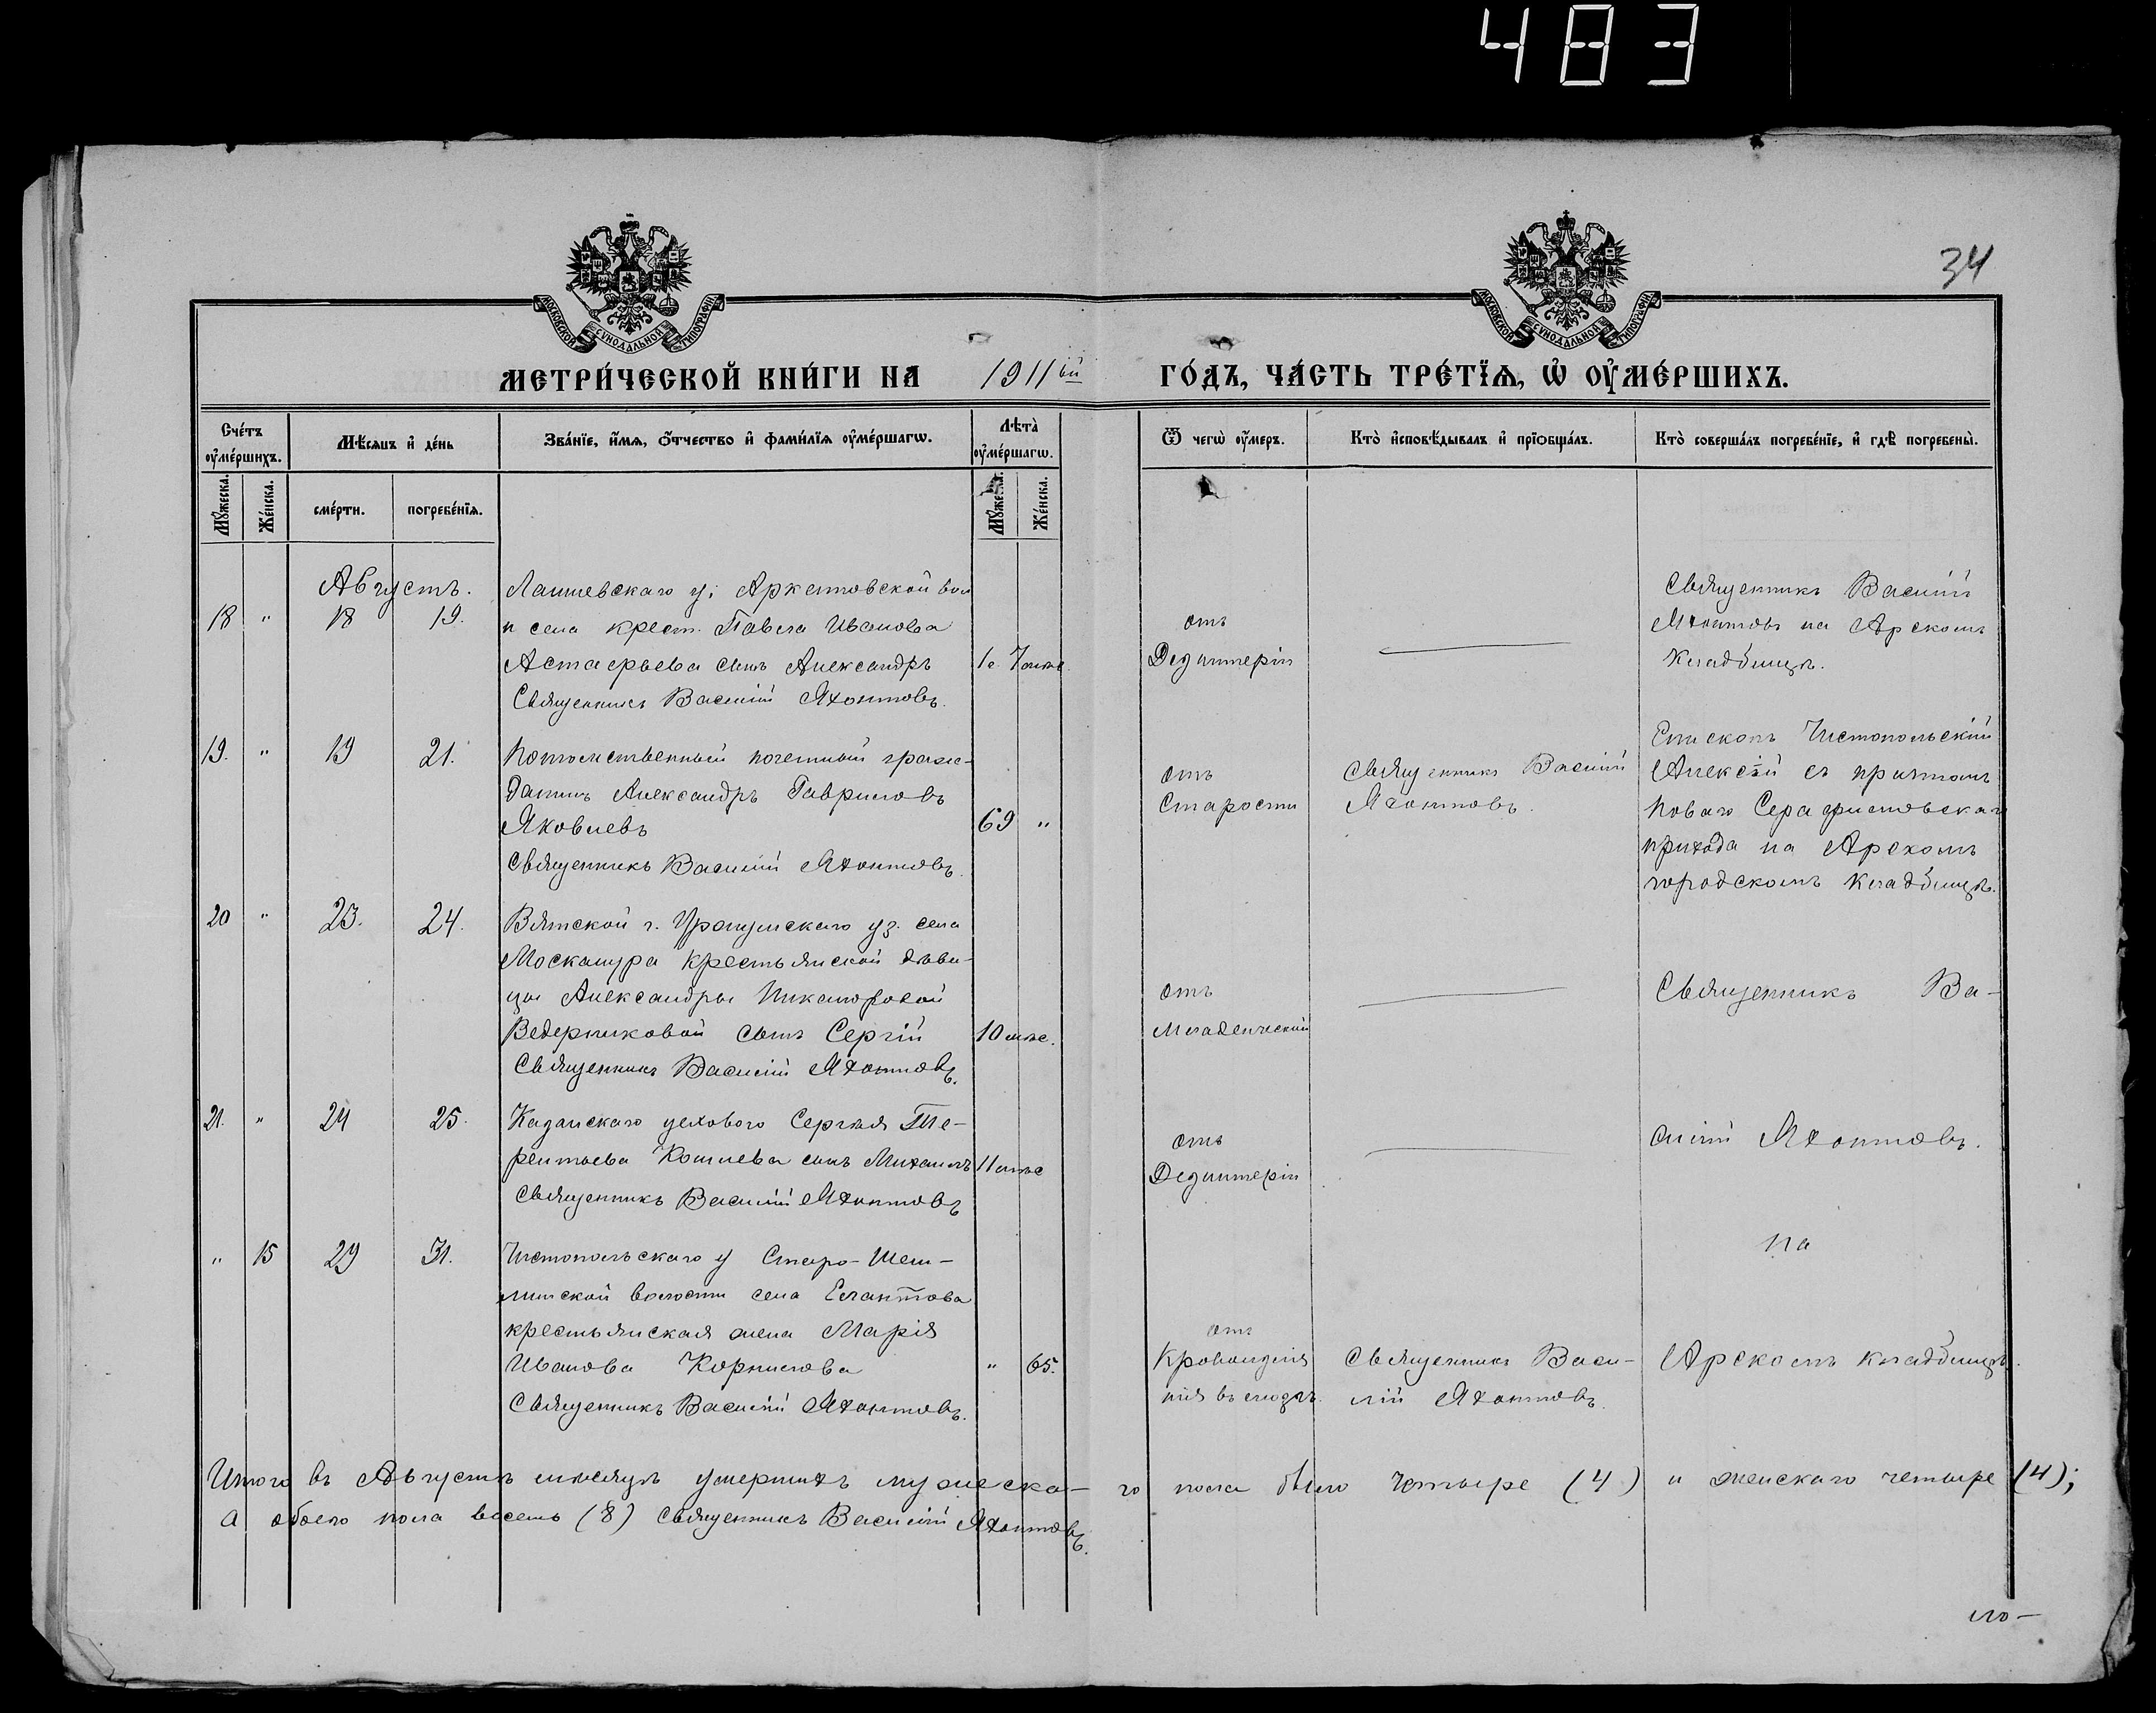 483
34
МОСКОВСКОЙ СУНОДАЛЬНОЙ ТИПОГРАФІИ
МОСКОВСКОЙ СУНОДАЛЬНОЙ ТИПОГРАФІИ
МЕТРИ́ЧЕСКОЙ КНИ́ГИ НА 1911ый ГО́ДЪ, ЧА́СТЬ ТРЕ́ТЇѦ, Ѡ ОУ҆МЕ́РШИХЪ.
Сче́тъ оу҆ме́ршихъ.
Мѣ́сѧцъ и҆ де́нь
Зва́нїе, и҆́мѧ, ѻ҆́тчество и҆ фами́лїѧ оу҆ме́ршагѡ.
Лѣта̀ оу҆ме́ршагѡ.
Ѿ чегѡ̀ оу҆́меръ.
Кто̀ и҆сповѣ́дывалъ и҆ прїѡбща́лъ.
Кто̀ соверша́лъ погребе́нїе, и҆ гдѣ̀ погребены̀.
Мꙋ́жеска.
Же́нска.
сме́рти.
погребе́нїѧ.
Мꙋ́жеска.
Же́нска.
Августъ.
18 " 18 19.
Лаишевскаго у; Аркатовской вол
и села крест. Павла Иванова
Астафьева сынъ Александръ
Священникъ Василій Яхонтовъ.
1г. 7 мѣс.
отъ
Дезинтеріи
Священникъ Василій
Яхонтовъ на Арскомъ
Кладбищѣ.
19. " 19 21.
Потомственный почетный граж-
данинъ Александръ Гавриловъ
Яковлевъ
Священникъ Василій Яхонтовъ.
69 "
отъ
Старости
Священникъ Василій
Яхонтовъ.
Епископъ Чистопольскій
Алексій съ причтомъ
Новаго Серафимовскаго
прихода на Арскомъ
городскомъ кладбищѣ.
20 " 23. 24.
Вятской г. Уржумскаго уз. села
крестьянской дѣви-
цы Александры Никаноровой
Ведерниковой сынъ Сергій
Священникъ Василій Яхонтовъ.
10 мѣс.
отъ
Младенческой
Священникъ Ва-
21. " 24 25.
Казанскаго цехового Сергѣя Те-
рентьева Кошлева сынъ Михаилъ
Священникъ Василій Яхонтовъ
11 мѣс
отъ
Дезинтеріи
силій Яхонтовъ.
" 15 29 31.
Чистопольскаго у Старо-Шеш-
минской волости села Елантова
крестьянская жена Марія
Иванова Корнилова
Священникъ Василій Яхонтовъ.
" 65.
отъ
Кровоизлія
нія въ мозгъ.
Священникъ Васи-
лій Яхонтовъ.
на
Арскомъ кладбищѣ.
Итого въ Августѣ мѣсяцѣ умершихъ мужеска- го пола было четыре (4) и женскаго четыре (4);
а обоего пола восемь (8) Священникъ Василій Яхонтовъ.
ло-